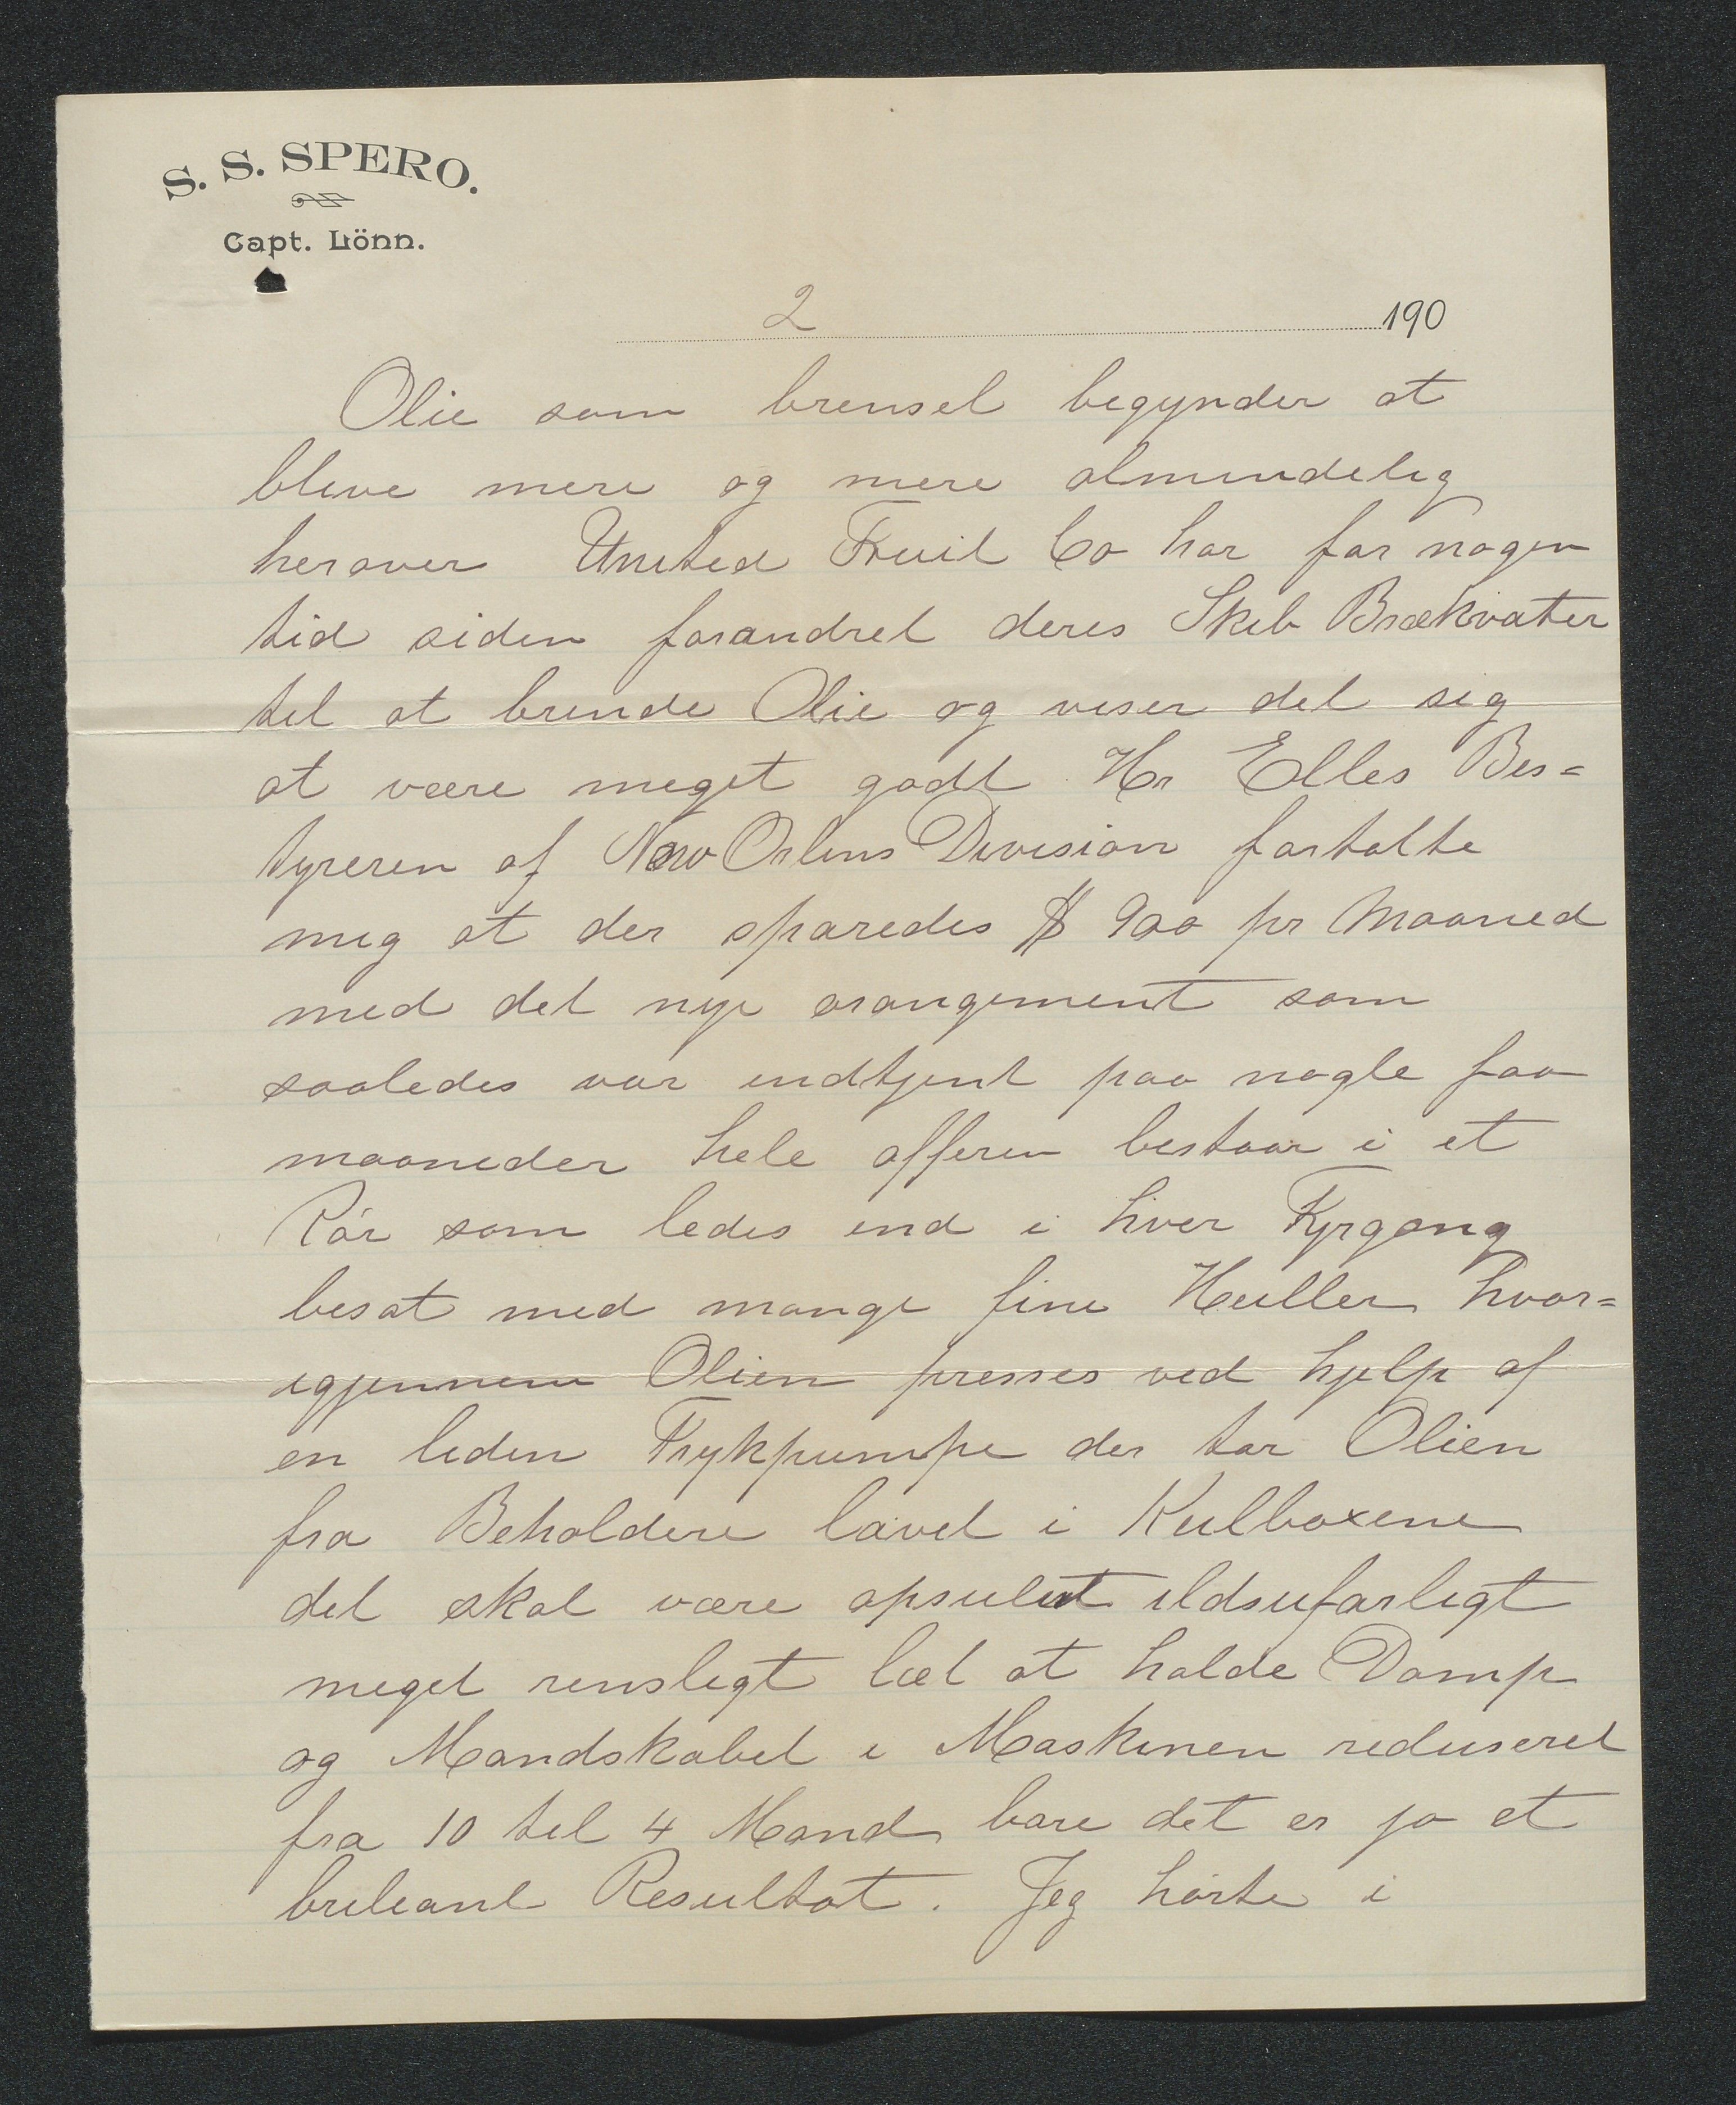 S. S. SPERO.
Capt. Lönn.
2 190
Olie som brensel begynder at
blive mere og mere almindelig
herover United Fruit Co har for nogen
tid siden forandret deres Skib Brækvater
til at brende Olie og viser det sig
at være meget godt Hr Elles Bes=
tyreren af New Orlins Division fortalte
mig at der sparedes $ 900 pr Maaned
med det nye arangement som
saaledes var indtjent paa nogle faa
maaneder hele afferen bestaar i et
Rör som ledes ind i hver Fyrgang
besat med mange fine Huller hvor=
igjennem Olien presses ved hjelp af
en liden Trykpumpe der tar Olien
fra Beholdere lavet i Kulboxene
det skal være apsulut ildsufarligt
meget rensligt læt at holde Damp
og Mandskabet i Maskinen reduseret
fra 10 til 4 Mand bare det er jo et
brileant Resultat. Jeg hörte i